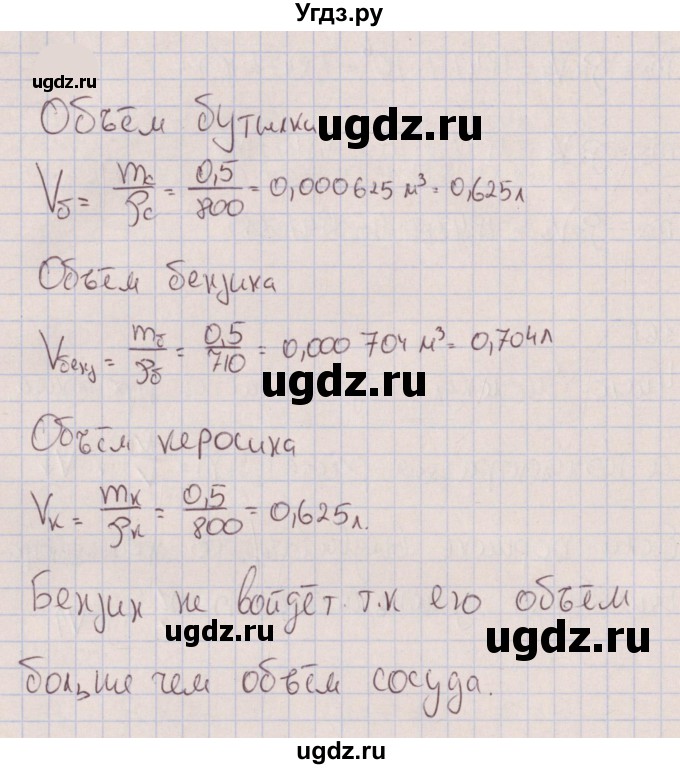 Угдз.ру
ugdz.ru
Объём бутылки
ugdz.ru
Vб = mс/ρс = 0,5/800 = 0,000625 м³ = 0,625 л
Объём бензина
Vбенз = mб/ρб = 0,5/710 = 0,000 704 м³ = 0,704 л
ugdz.ru
Объём керосина
Vк = mк/ρк = 0,5/800 = 0,625 л.
Бензин не войдёт т.к его объём
ugdz.ru
ugdz.ru
больше чем объём сосуда.
ugdz.ru